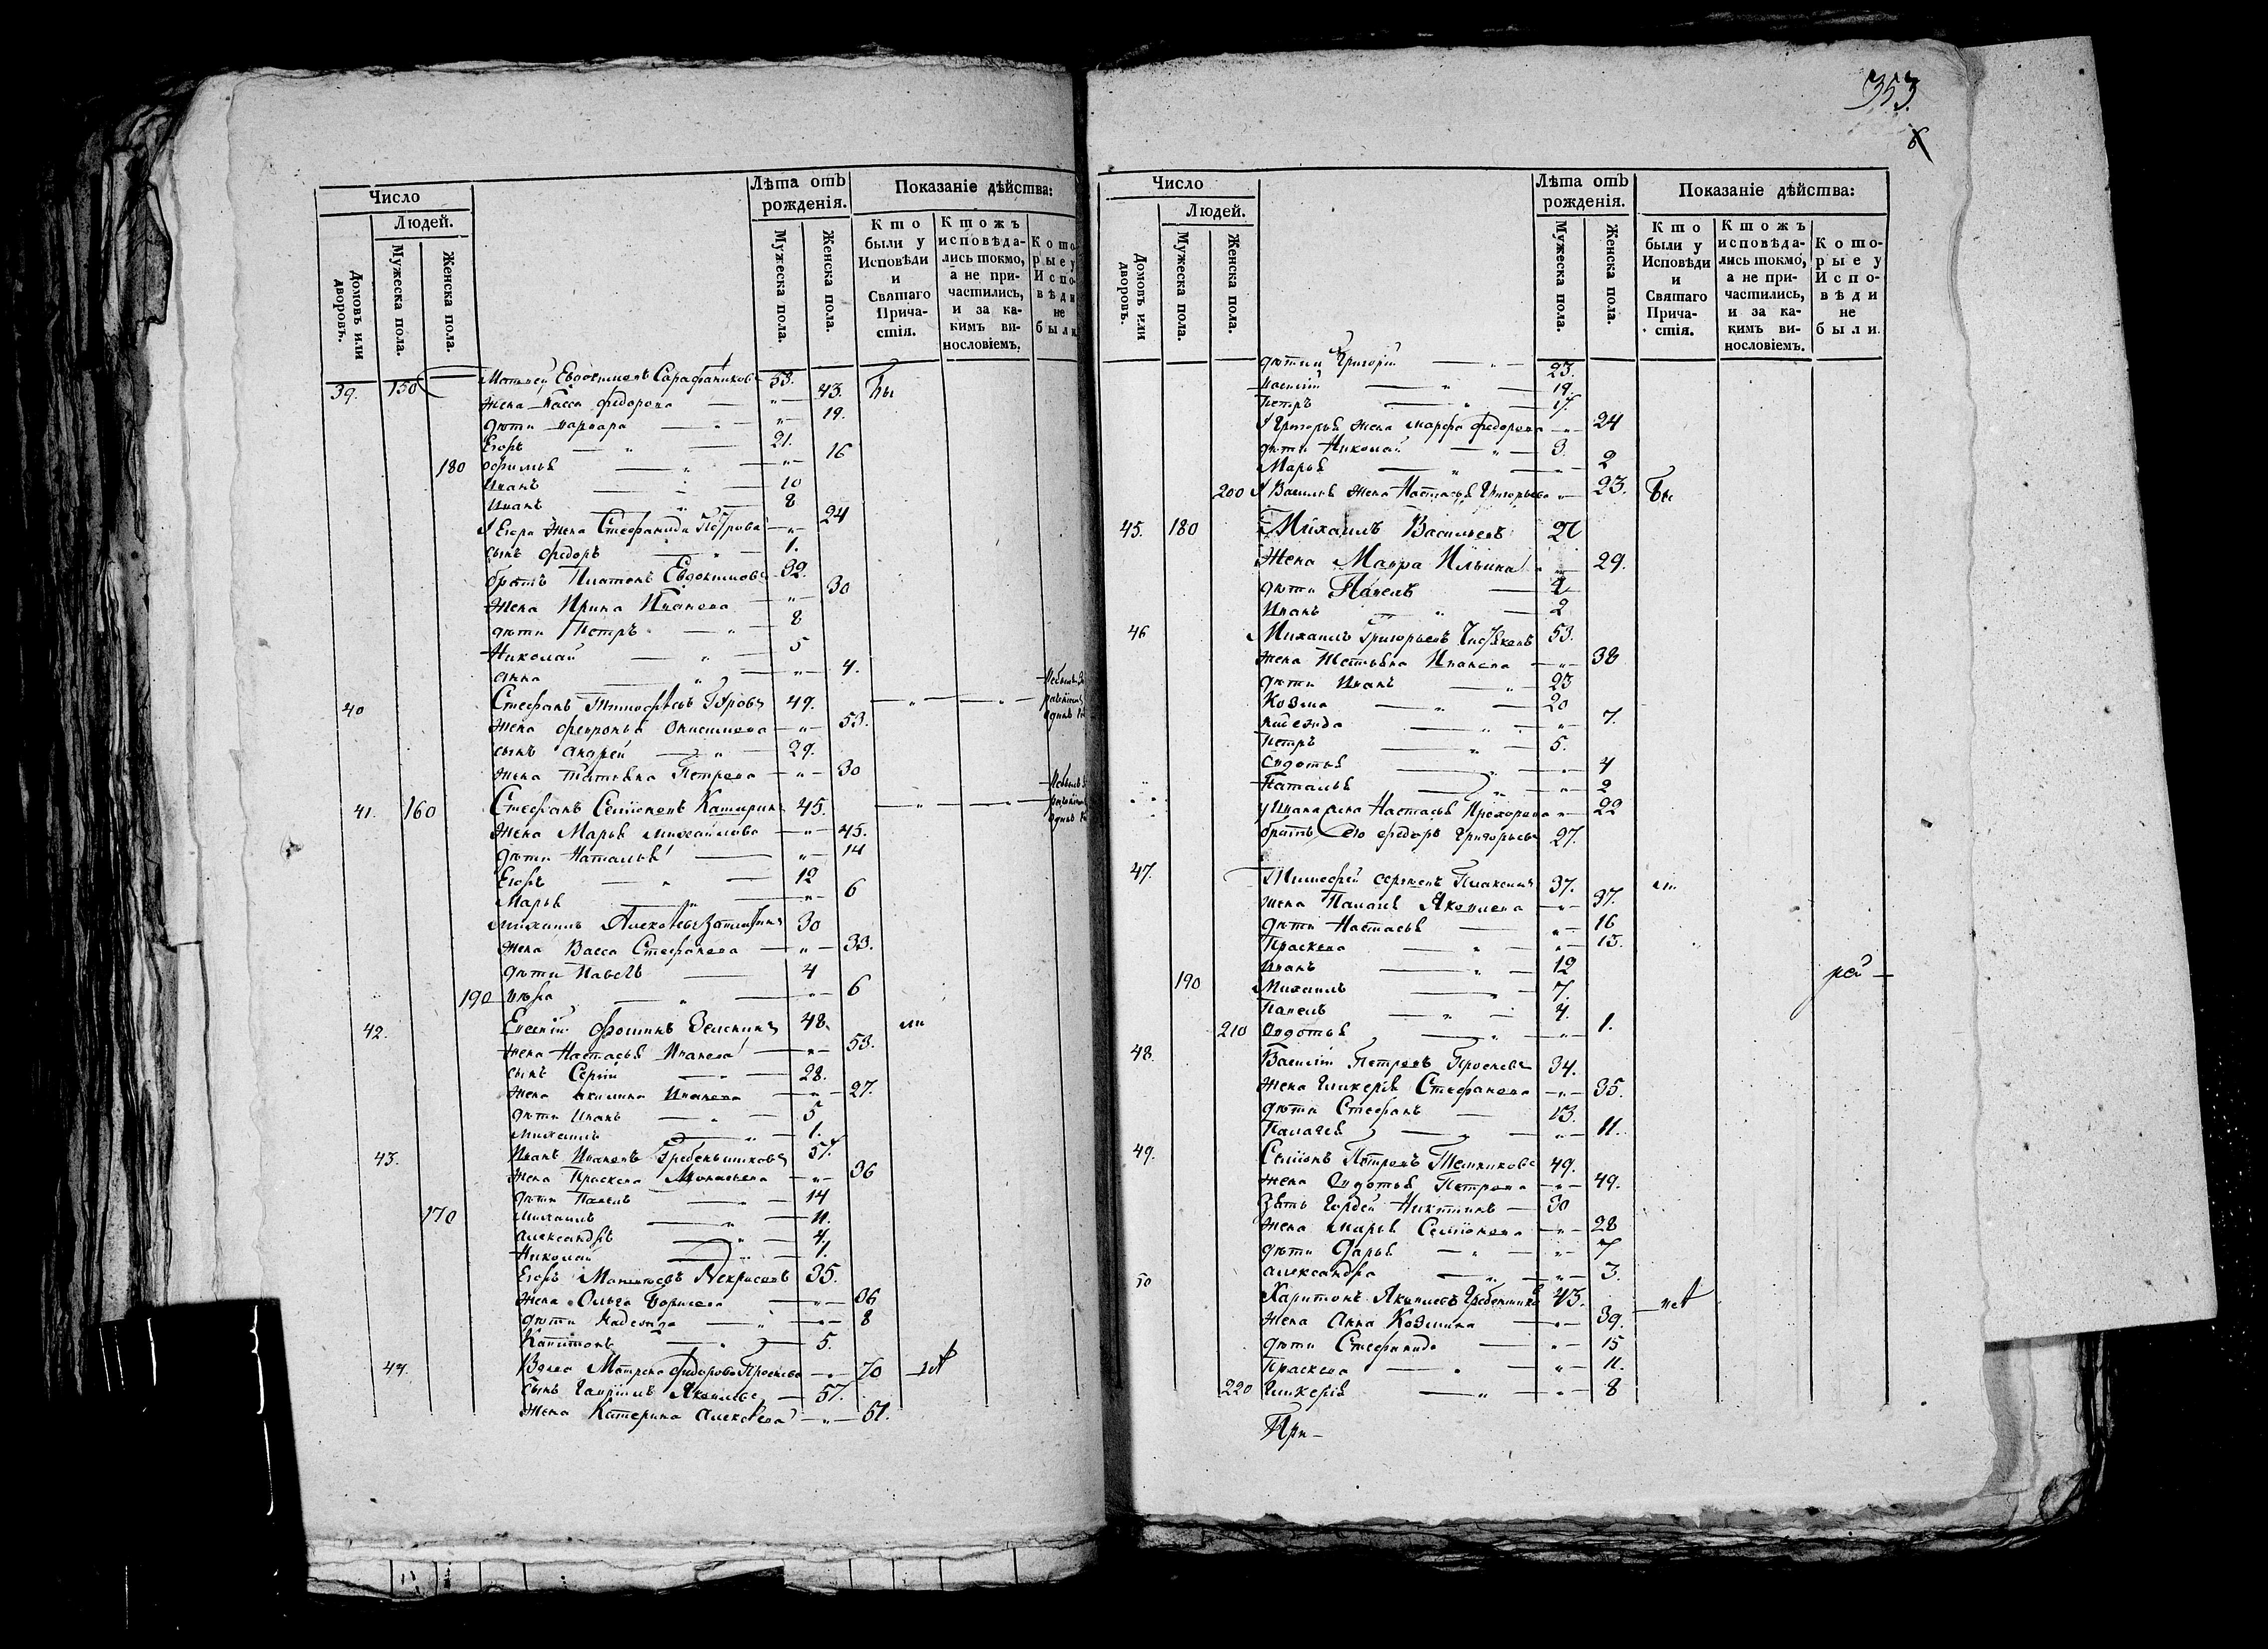 Число
Людей.
Домовъ или дворовъ.
Мужеска пола.
Женска пола.
Лѣта отъ рожденія.
Мужеска пола.
Женска пола.
Показаніе дѣйства:
Кто были у Исповѣди и Святаго Причастія.
Ктожъ исповѣдались токмо, а не причастились, и за какимъ винословіемъ.
Которые у Исповѣди не были.
39. 150 Матвей Евдокимовъ Сарафанниковъ 53. Бы
жена Васса Федорова — „ — 43.
дѣти Варвара — „ — 19.
Егоръ — „ — 21.
180 Офимья — „ — 16
Иванъ — „ — 10
Иванъ — „ — 8
Егора жена Стефанида Петрова — „ — 24
сынъ Федоръ — „ — 1.
братъ Платонъ Евдокимовъ 32.
жена Ирина Иванова — „ — 30
дѣти Петръ — „ — 8
Николай — „ — 5
Анна — „ — 4.
40 Стефанъ Тимофѣевъ 49. — „ — — „ —
жена Февронья — „ — 53.
сынъ Андрей — „ — 29.
жена Татьяна Петрова — „ — 30
41. 160 Стефанъ Семіоновъ 45. — „ — — „ —
жена Марья Михайлова — „ — 45.
дѣти Наталья — „ — 14
Егоръ — „ — 12
Марья — „ — 6
Михаилъ 30
жена Васса Стефанова — „ — 33.
дѣти Павелъ — 4
190 — „ — 6
42. Евсевій Фоминъ 48. ли
жена Настасья Иванова — „ — 53.
сынъ Сергій — „ — 28.
жена Акилина Иванова — „ — 27.
дѣти Иванъ — „ — 5
Михаилъ — „ — 1.
43. Иванъ Ивановъ Гребенщиковъ 37.
жена Праскева — „ — 36
дѣти Павелъ — „ — 14
170 Михаилъ — „ — 11.
Александръ — „ — 4.
Николай — „ — 1.
Егоръ Некрасовъ 35.
жена Ольга Борисова — „ — 36
дѣти Надежда — „ — 8
Капитонъ — „ — 5.
44. Вдова Матрена Федорова — „ — 70
сынъ Гавріилъ Яковлевъ — 51.
жена Катерина Алексѣева — „ — 51.
353.
Число
Людей.
Домовъ или дворовъ.
Мужеска пола.
Женска пола.
Лѣта отъ рожденія.
Мужеска пола.
Женска пола.
Показаніе дѣйства:
Кто были у Исповѣди и Святаго Причастія.
Ктожъ исповѣдались токмо, а не причастились, и за какимъ винословіемъ.
Которые у Исповѣди не были.
дѣти Григорій — „ — 23.
Василій — „ — 19.
Петръ — „ — 17.
Григорья жена Марфа Федорова — „ — 24
дѣти Николай — „ — 3.
Марья — „ — 2
200 Василья жена Настасья Григорьева „ 23. Бы
45. 180 Михаилъ Васильевъ
жена Мавра Ильина — „ — 29.
дѣти Павелъ —
Иванъ — „ — 2
46 Михаилъ Григорьевъ 53.
жена Татьяна Иванова — „ — 38
дѣти Иванъ — „ — 23
Козма — „ — 20
Надежда — „ — 7.
Петръ — „ — 5.
Овдотья — „ — 4
Наталья — „ — 2
у Ивана жена Настасья Прохорова „ 22
братъ Его Федоръ Григорьевъ 27.
47. Тимофей 37. ли
жена Палагея Яковлева — „ — 37.
дѣти Настасья — „ — 16
Праскева — „ — 13.
Иванъ — „ — 12
190 Михаилъ — „ — 7.
Павелъ — „ — 4.
210 Овдотья — „ — 1.
48. Василій Петровъ 34.
жена Гликерія Стефанова — „ — 35.
дѣти Стефанъ — 13.
Палагея — „ — 11.
49. Семіонъ Петровъ 49.
жена Овдотья Петрова — „ — 49.
зять Гордей Никитинъ — 30
жена Марья Семіонова — „ — 28
дѣти Дарья — „ — 7
Александра — „ — 3.
50 Харитонъ Яковлевъ Гребенщиковъ 43.
жена Анна Козмина — „ — 39.
дѣти Стефанида — „ — 15
Праскева — „ — 11.
220 Гликерія — „ — 8
При-